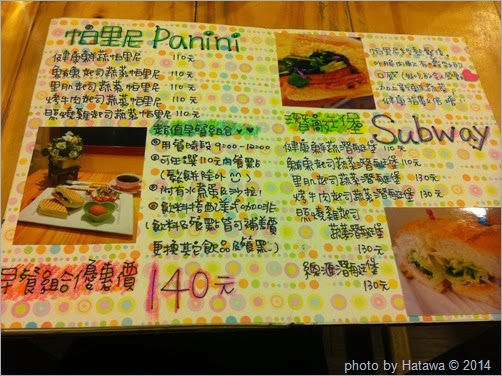 帕里尼 Panini
健康鮮蔬帕里尼 110元
鮪魚起司蔬菜帕里尼 110元
里肌起司蔬菜帕里尼 110元
烤牛肉起司蔬菜帕里尼 110元
煙燻雞起司蔬菜帕里尼 110元
帕里尼
健康
超值早餐組合
用餐時段 9:00-12:00
可任選110元內餐點
(鬆餅除外)
附有水果和沙拉!
飲料搭配美式咖啡
(飲料及餐點皆可補差價
更換其它飲品及餐點)
早餐組合優惠價 140元
潛艇堡 Subway
健康鮮蔬潛艇堡 110元
鮪魚起司蔬菜潛艇堡 110元
里肌起司蔬菜潛艇堡 130元
烤牛肉起司蔬菜潛艇堡 130元
煙燻雞起司
蔬菜潛艇堡
130元
總匯潛艇堡
130元
photo by Hatawa © 2014